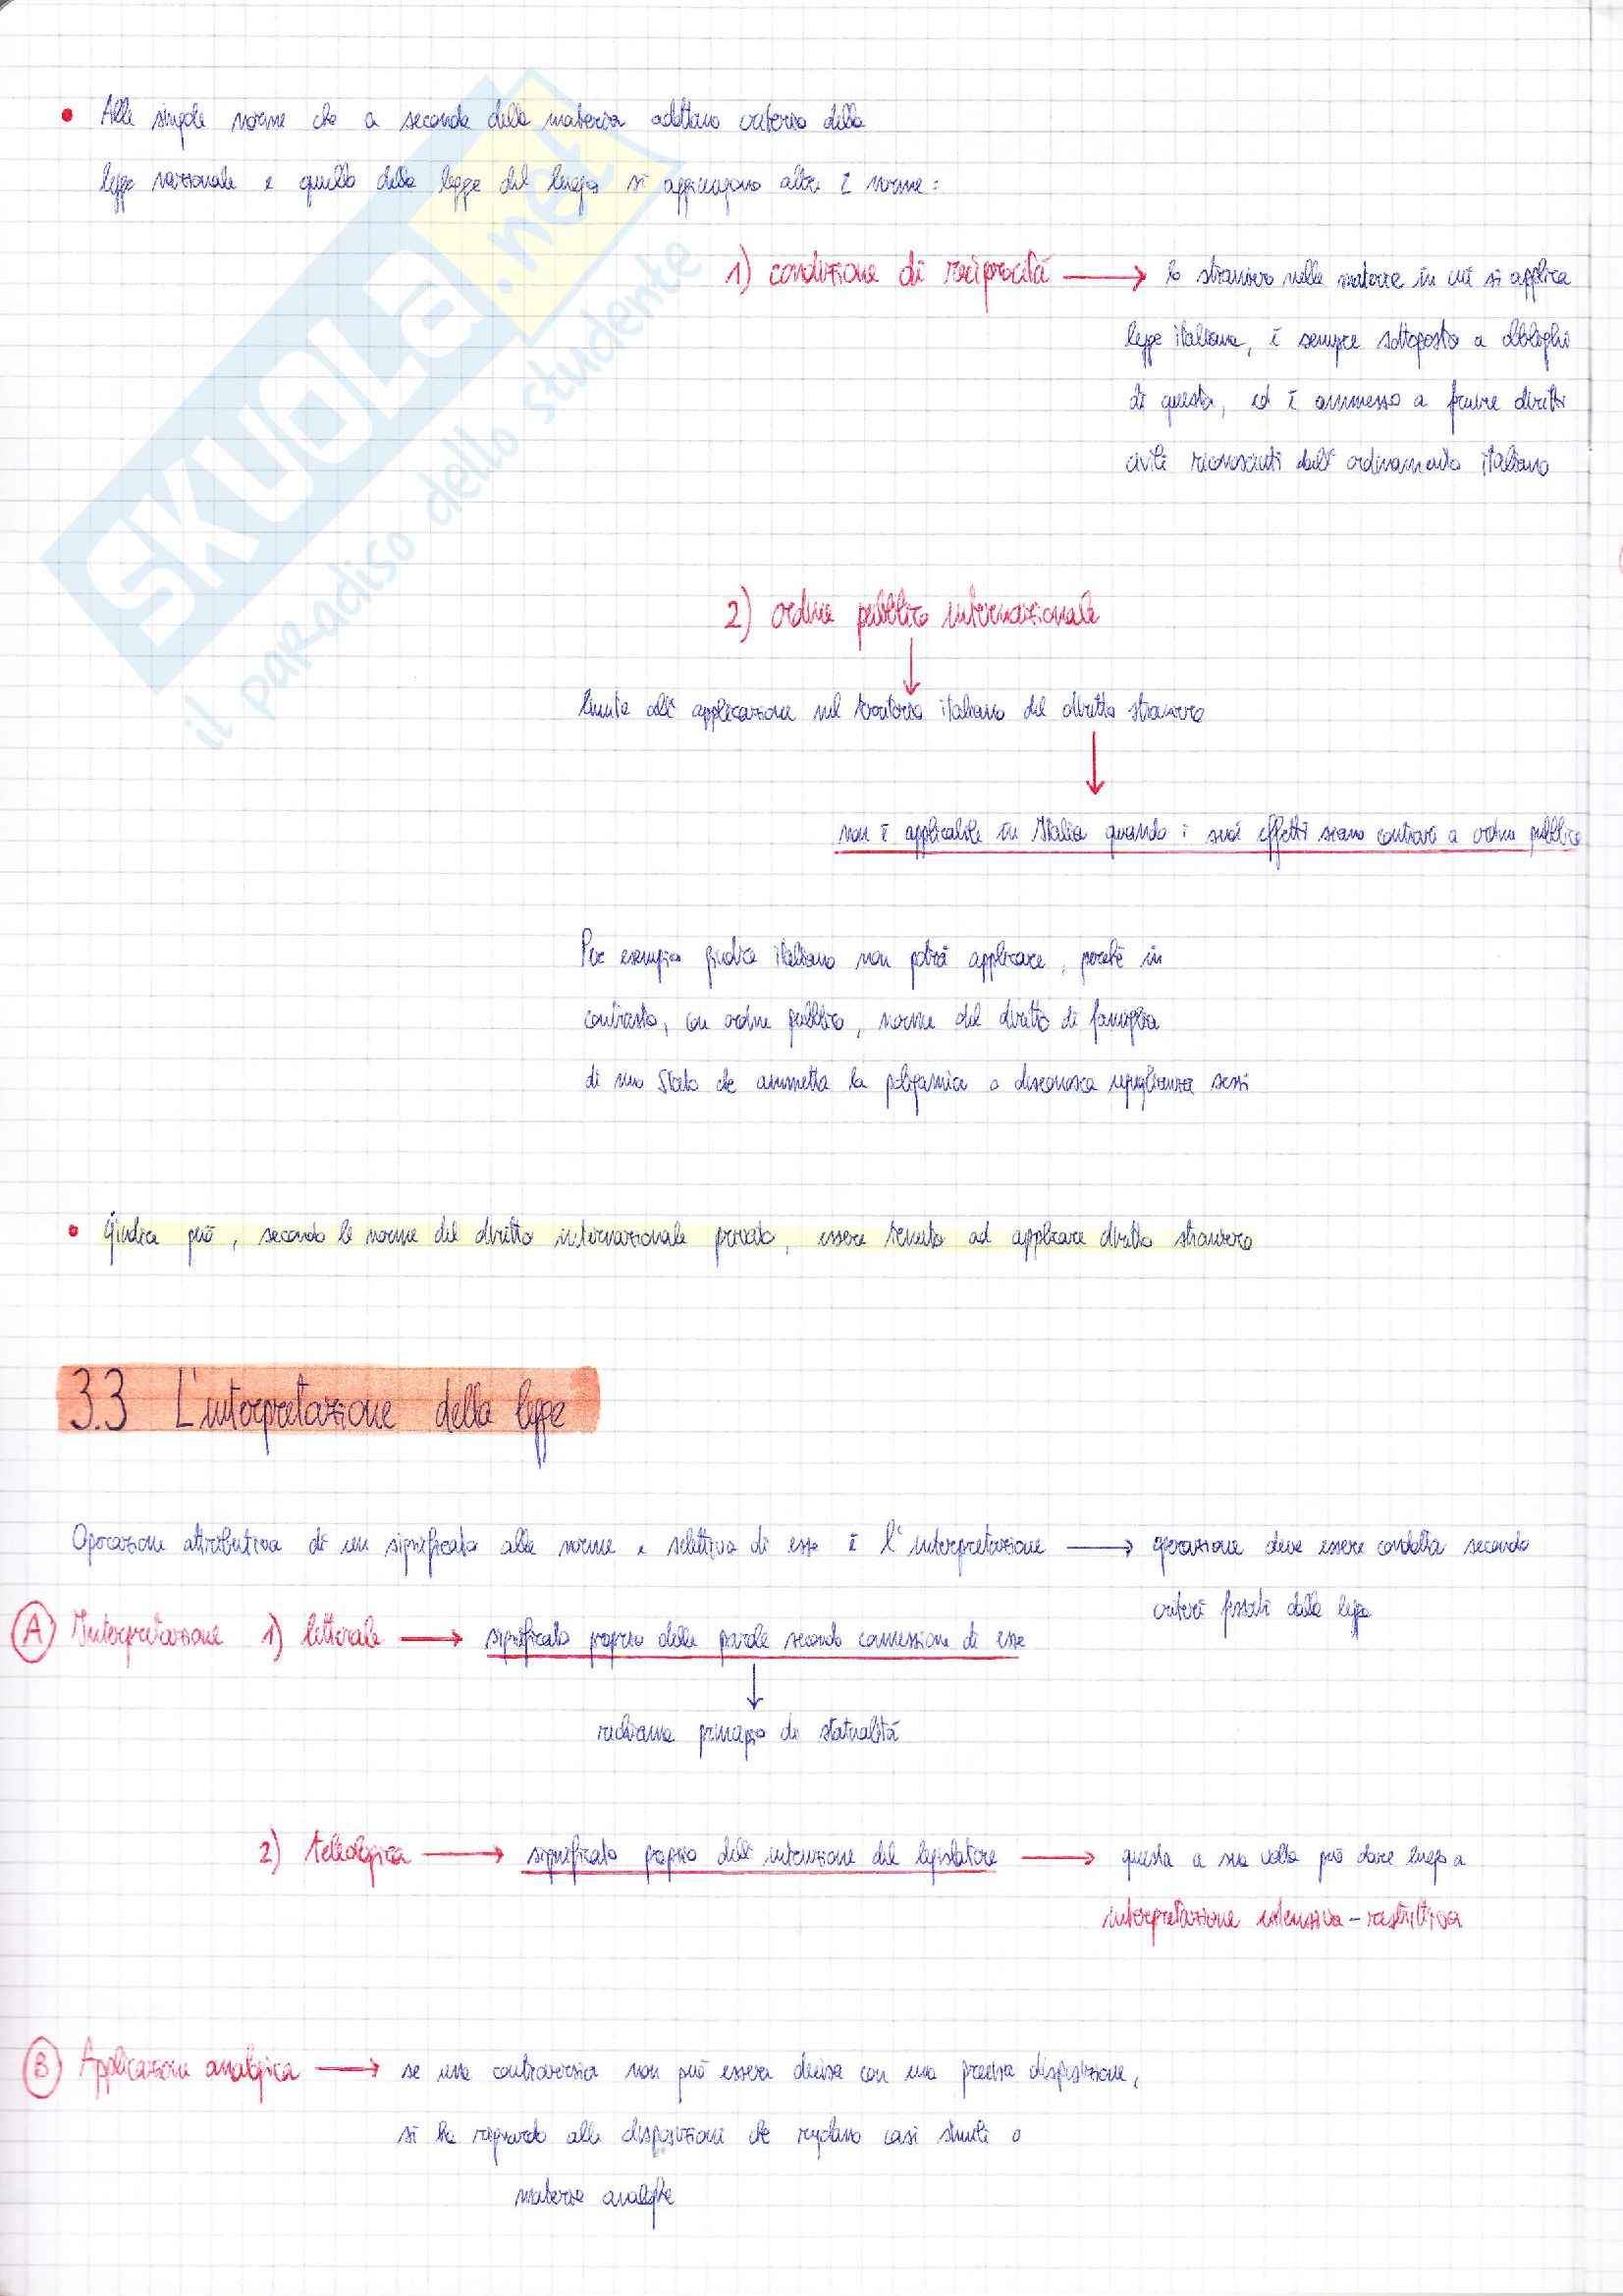 • Alle singole norme che a seconda della materia adottano criterio della
legge nazionale e quello della legge del luogo si aggiungono altre 2 norme:
1) condizione di reciprocità → lo straniero nelle materie in cui si applica
legge italiana, è sempre sottoposto a obblighi
di questa, ed è ammesso a fruire diritti
civili riconosciuti dall'ordinamento italiano
2) ordine pubblico internazionale
limite all'applicazione nel territorio italiano del diritto straniero
non è applicabile in Italia quando i suoi effetti siano contrari a ordine pubblico
Per esempio giudice italiano non potrà applicare, perché in
contrasto, con ordine pubblico, norme del diritto di famiglia
di uno Stato che ammetta la poligamia o disconosca uguaglianza sessi
• Giudice può, secondo le norme del diritto internazionale privato, essere tenuto ad applicare diritto straniero
3.3 L'interpretazione della legge
Operazione attributiva di un significato alle norme e selettiva di esse è l'interpretazione → operazione deve essere condotta secondo
criteri fissati dalla legge
A Interpretazione 1) letterale → significato proprio delle parole secondo connessione di esse
richiama principio di statualità
2) teleologica → significato proprio dell'intenzione del legislatore → questa a sua volta può dare luogo a
interpretazione estensiva-restrittiva
B Applicazione analogica → se una controversia non può essere decisa con una precisa disposizione,
si ha riguardo alle disposizioni che regolano casi simili o
materie analoghe
SKUOLA.net
il paradiso dello studente